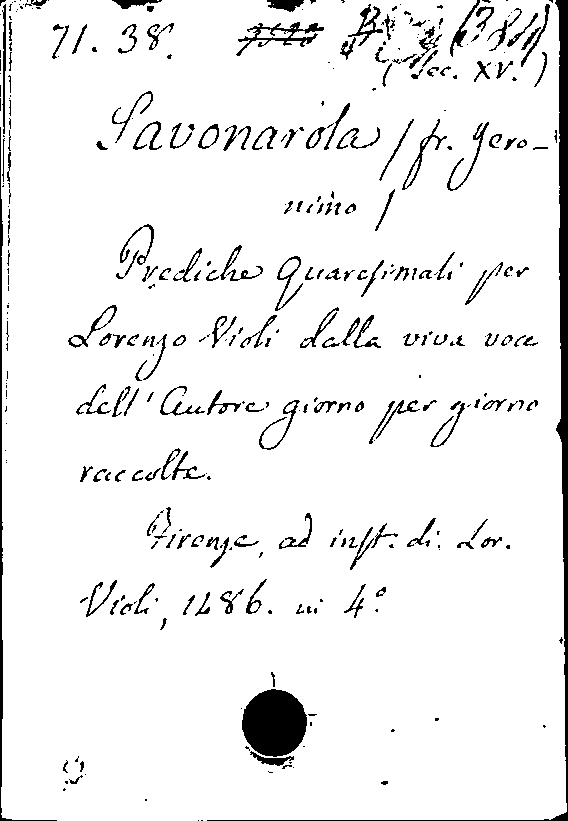 71. 38. 7528 (384)
(Sec. XV.)
Savonarola / fr. Gero-
nimo /
Prediche Quaresimali per
Lorenzo Violi dalla viva voce
dell'Autore giorno per giorno
raccolte.
Firenze, ad inst. di. Lor.
Violi, 1486. in 4.°